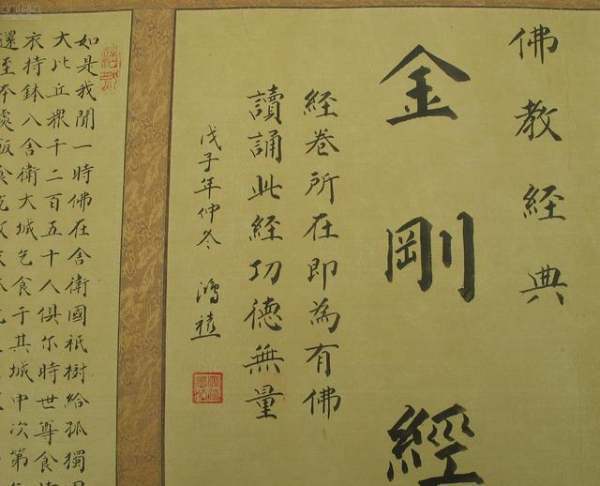 佛教經典
金剛經
經卷所在即為有佛
讀誦此經功德無量
戊子年仲冬 鴻
如是我聞一時佛在舍衛國祇樹給孤獨
大比丘衆千二百五十人俱尔時世尊食
衣持鉢入舍衛大城乞食于其城中次第
還至本處飯食